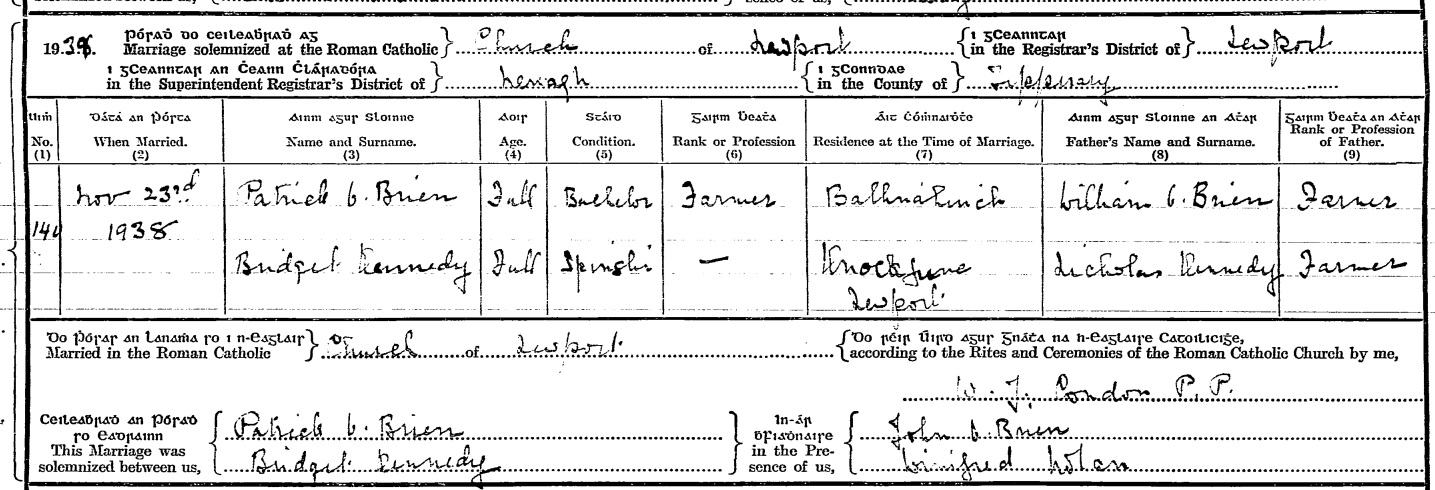 1938. Pósaḋ do ceileaḃraḋ ag
Marriage solemnized at the Roman Catholic } Church of Newport { i gCeanntar in the Registrar's District of } Newport
i gCeanntar an Ċeann Ċláraḋóra
in the Superintendent Registrar's District of } Nenagh { i gConndae in the County of } Tipperary
Uiṁ Dáta an Pósta Ainm agus Sloinne Aois Stáid Gairm Ḃeaṫa Áit Ċóṁnaiḋṫe Ainm agus Sloinne an Aṫar Gairm Ḃeaṫa an Aṫar
No. When Married. Name and Surname. Age. Condition. Rank or Profession Residence at the Time of Marriage. Father's Name and Surname. Rank or Profession of Father.
(1) (2) (3) (4) (5) (6) (7) (8) (9)
Nov 23rd Patrick O'Brien Full Bachelor Farmer Ballnahinch William O'Brien Farmer
1938
Bridget Kennedy Full Spinster — Knockfune Nicholas Kennedy Farmer
Newport
Do Ṗósas an Lanaṁa so i n-Eaglais
Married in the Roman Catholic } Church of Newport { Do réir Úird agus Gnáṫa na h-Eaglaise Catoilicige,
according to the Rites and Ceremonies of the Roman Catholic Church by me,
W. J. Condon P.P.
Ceileaḃraḋ an Pósaḋ
so eadrainn
This Marriage was
solemnized between us, { Patrick O'Brien
Bridget Kennedy
} In-ár
ḃfiaḋnaire
in the Pre-
sence of us, { John O'Brien
Winifred Nolan